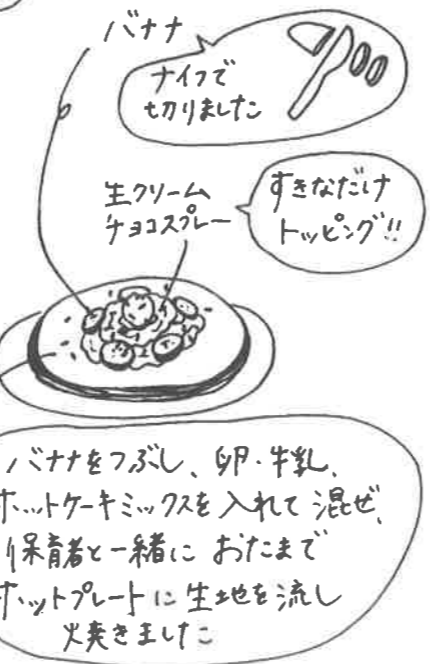 バナナ
ナイフで
切りました
生クリーム
チョコスプレー
すきなだけ
トッピング!!
バナナをつぶし、卵・牛乳、
ホットケーキミックスを入れて混ぜ、
保育者と一緒に おたまで
ホットプレートに生地を流し
焼きました